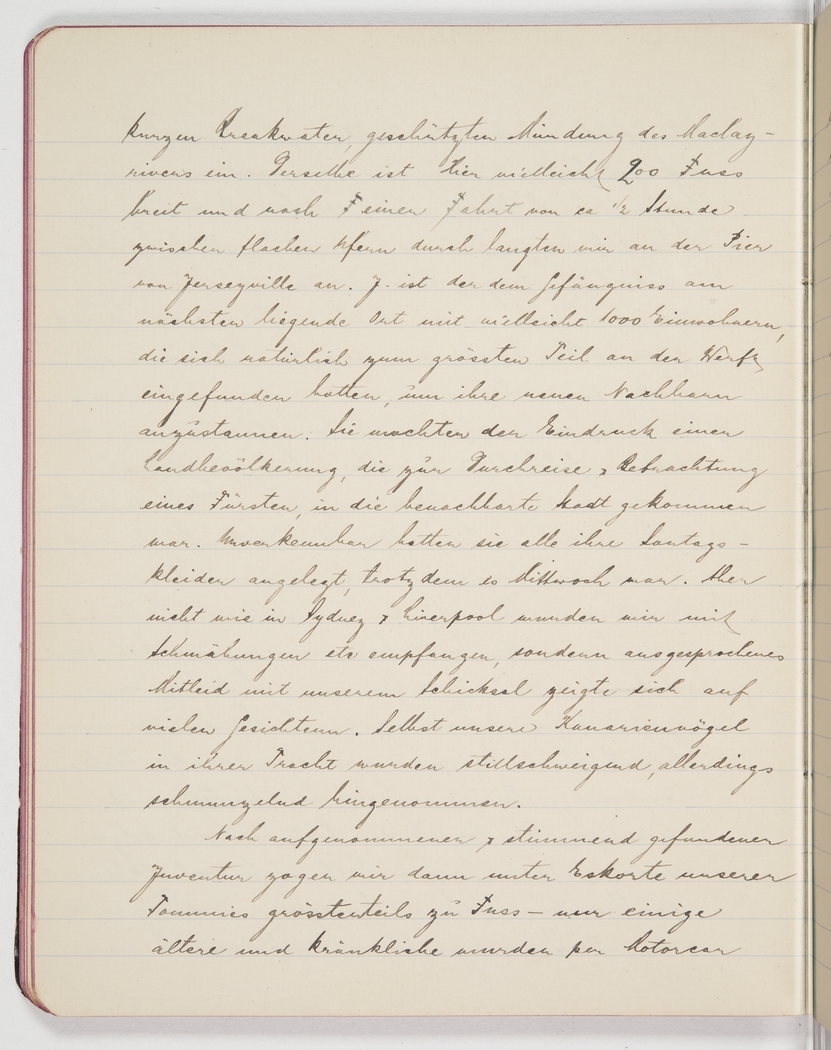 kurzen Breakwater, geschützten Mündung des Maclay-
rivers ein. Derselbe ist hier vielleicht 200 Fuss
breit und nach einer Fahrt von ca 1/2 Stunde
zwischen flachen Ufern durch langten wir an der Pier
von Jerseyville an. J. ist der dem Gefängniss am
nächsten liegende Ort mit vielleicht 1000 Einwohnern,
die sich natürlich zum grössten Teil an der Werft
eingefunden hatten, um ihre neuen Nachbarn
anzustaunen. Sie machten den Eindruck einer
Landbevölkerung, die zur Durchreise & Betrachtung
eines Fürsten, in die benachbarte Stadt gekommen
war. Unverkennbar hatten sie alle ihre Sontags-
kleider angelegt, trotzdem es Mittwoch war. Aber
nicht wie in Sydney & Liverpool wurden wir mit
Schmähungen etc empfangen, sondern ausgesprochenes
Mitleid mit unserem Schicksal zeigte sich auf
vielen Gesichtern. Selbst unsere Kanarienvögel
in ihrer Tracht wurden stillschweigend, allerdings
schmunzelnd hingenommen.
Nach aufgenommener & stimmend gefundener
Inventur zogen wir dann unter Eskorte unserer
Tommies grösstenteils zu Fuss – nur einige
ältere und kränkliche wurden per Motorcar